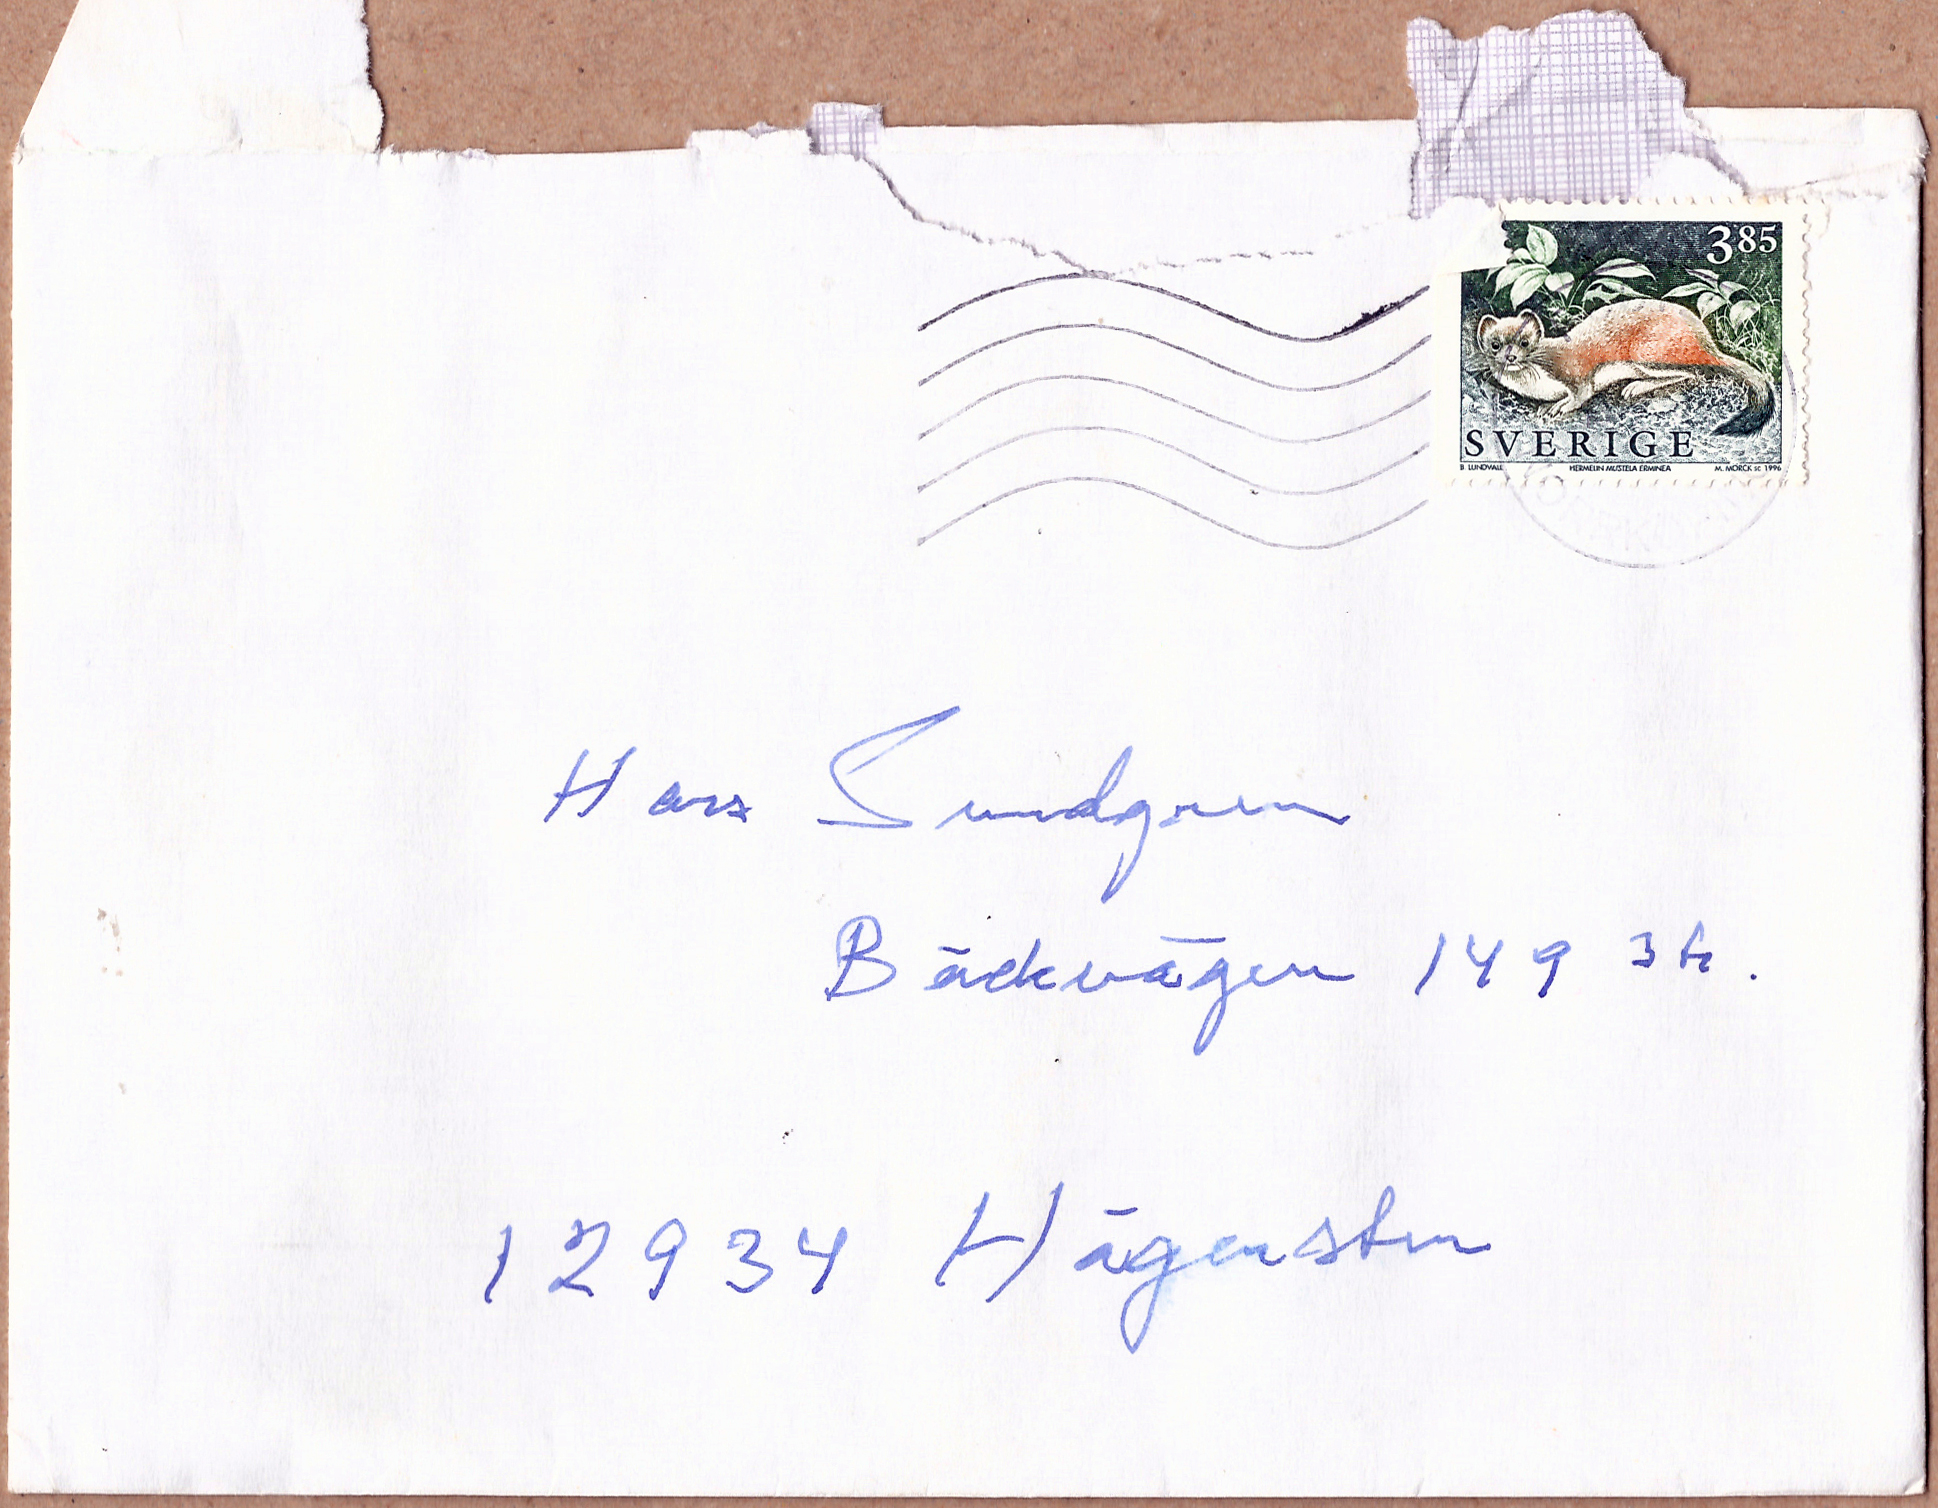 3 85
SVERIGE
B. LUNDVALL HERMELIN MUSTELA ERMINEA M. MÖRCK SC 1996
Hans Sundgren
Bäckvägen 149 3tr.
12934 Hägersten